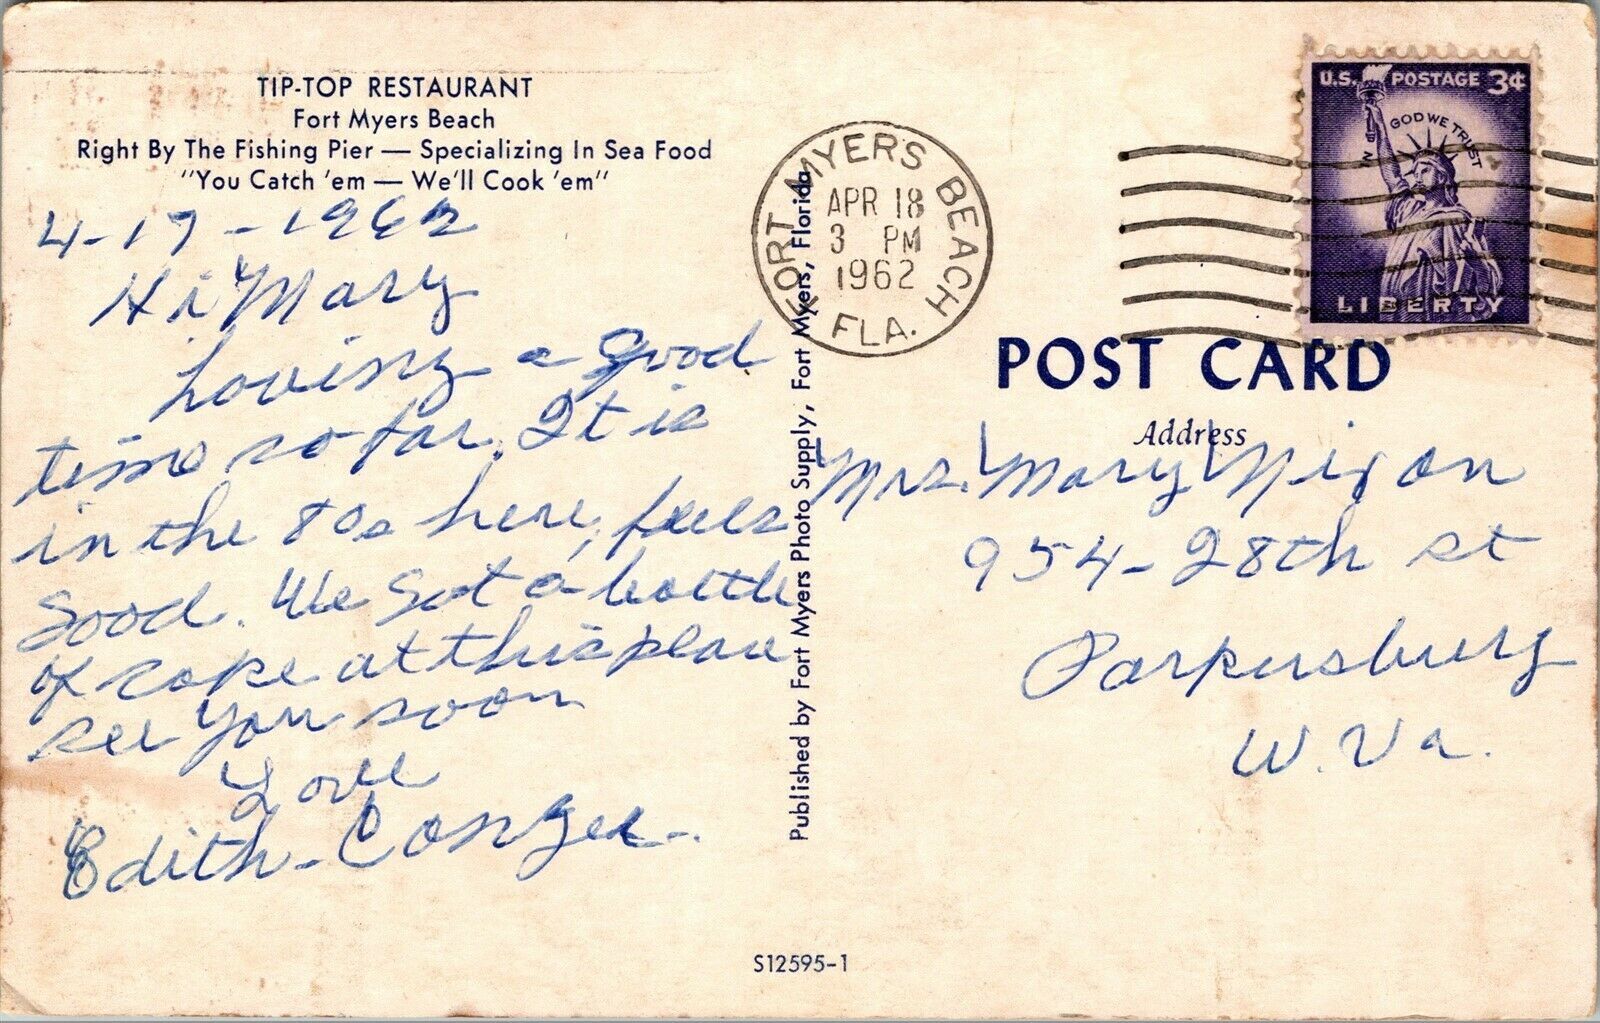 TIP-TOP RESTAURANT
Fort Myers Beach
Right By The Fishing Pier — Specializing In Sea Food
"You Catch 'em — We'll Cook 'em"
4-17-1962
Hi Mary
Having a good
time so far. It is
in the 80s here, feels
Good. We Got a bottle
of coke at this place
see you soon
Love
Edith Conger
Published by Fort Myers Photo Supply, Fort Myers, Florida
FORT MYERS BEACH
APR 18
3 PM
1962
FLA.
U.S. POSTAGE 3¢
IN GOD WE TRUST
LIBERTY
POST CARD
Address
Mrs. Mary Nixon
954-28th st
Parkersburg
W. Va.
S12595-1